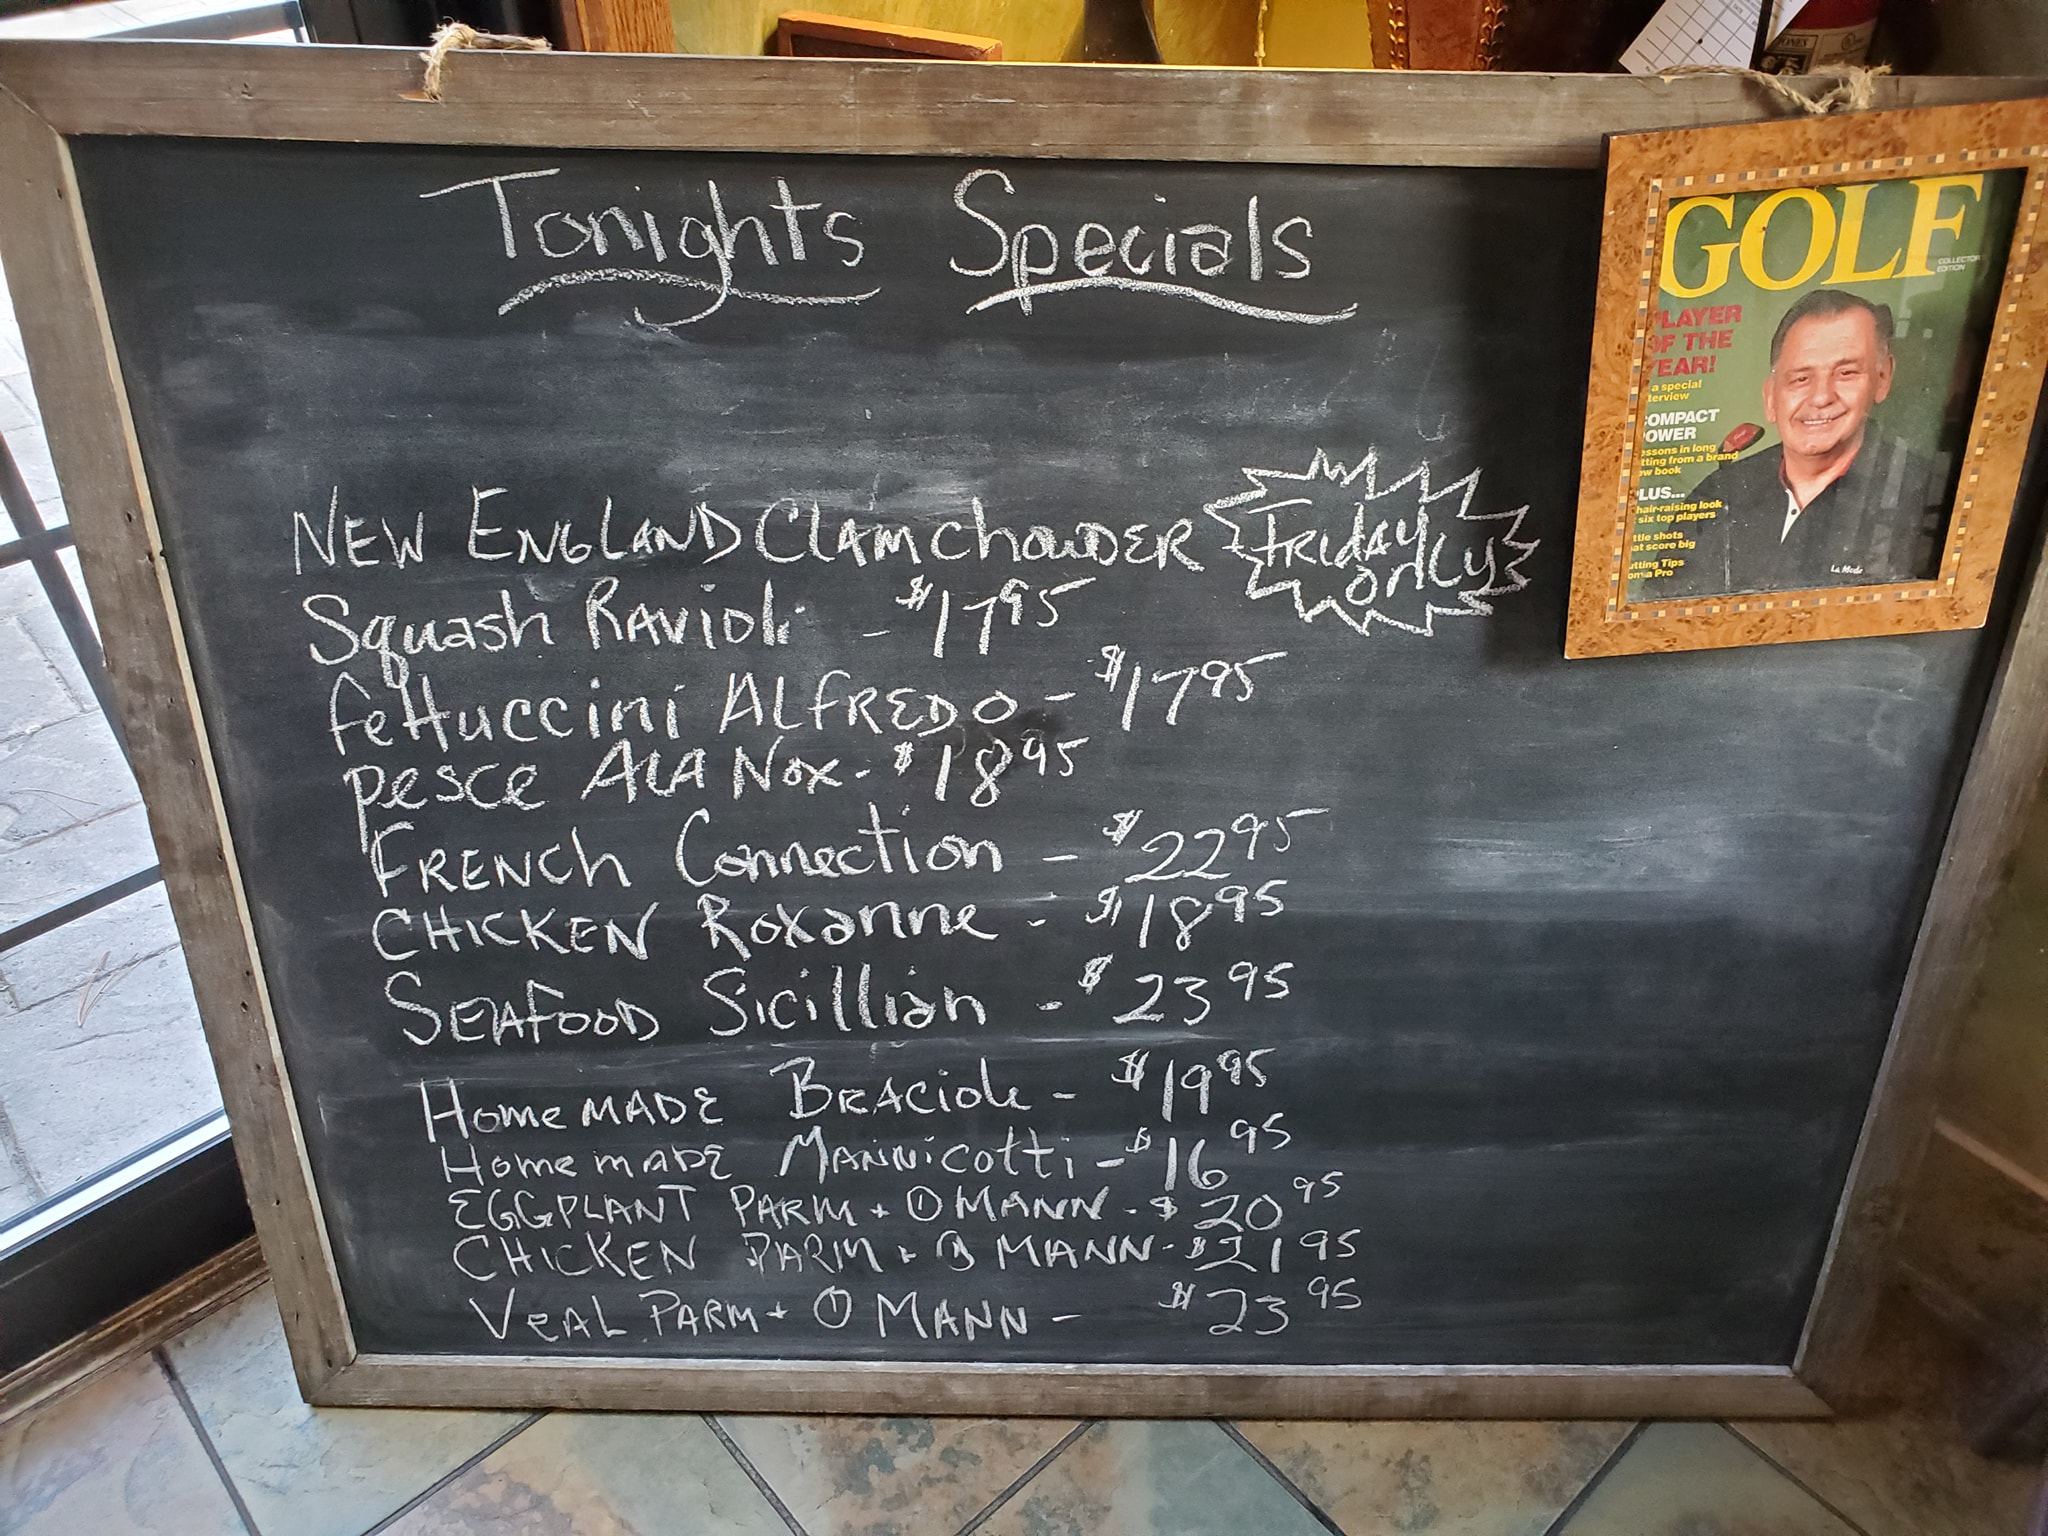 Tonights Specials
NEW ENGLAND Clam Chowder FRIDAY ONLY
Squash Ravioli - $17 95
fettuccini ALFREDO - $17 95
pesce ALA NOX - $18 95
FRENCH Connection - $22 95
CHICKEN Roxanne - $18 95
SEAFOOD Sicillian - $23 95
HomeMADE BRACiole - $19 95
Homemade Mannicotti - $16 95
EGGPLANT PARM + MANN - $20 95
CHICKEN PARM + MANN - $21 95
VEAL PARM + MANN - $23 95
GOLF
COLLECTOR
EDITION
PLAYER
OF THE
YEAR!
a special
terview
COMPACT
POWER
essons in long
tting from a brand
ew book
PLUS...
hair-raising look
six top players
ttle shots
at score big
utting Tips
om a Pro
La Mode